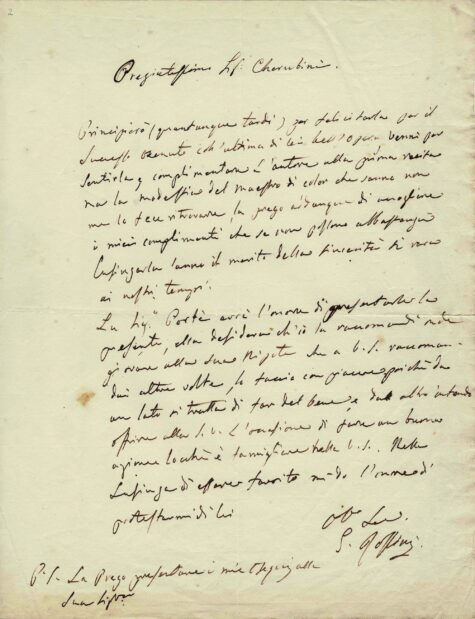 2
Pregiatissimo Sig. Cherubini.
Principierò (quantunque tardi) per felicitarla per il
Successo ottenuto coll'ultima di lei bell'opera venni per
sentirla, e complimentare l'autore alla prima recita
ma la modestia del maestro di color che sanno non
me lo fece ritrovare, la prego adunque di accogliere
i miei complimenti che se non possono abbastanza
Lusingarla hanno il merito della sincerità sì rara
ai nostri tempi.
La Sig.ra Portè avrà l'onore di presentarle la
presente, ella desidera ch'io la raccomandi onde
giovare alla sua Nipote che a V.S. raccoman-
dai altre volte, lo faccio con piacere poiché da
un lato si tratta di far del bene, e dall'altro intendo
offrire alla S.V. l'occasione di fare una buona
azione locché è famigliare nella V.S. Nella
Lusinga di essere favorito mi do l'onore di
protestarmi di lei
G. Rossini.
P.S. La Prego presentare i miei ossequi alla
Sua Signora